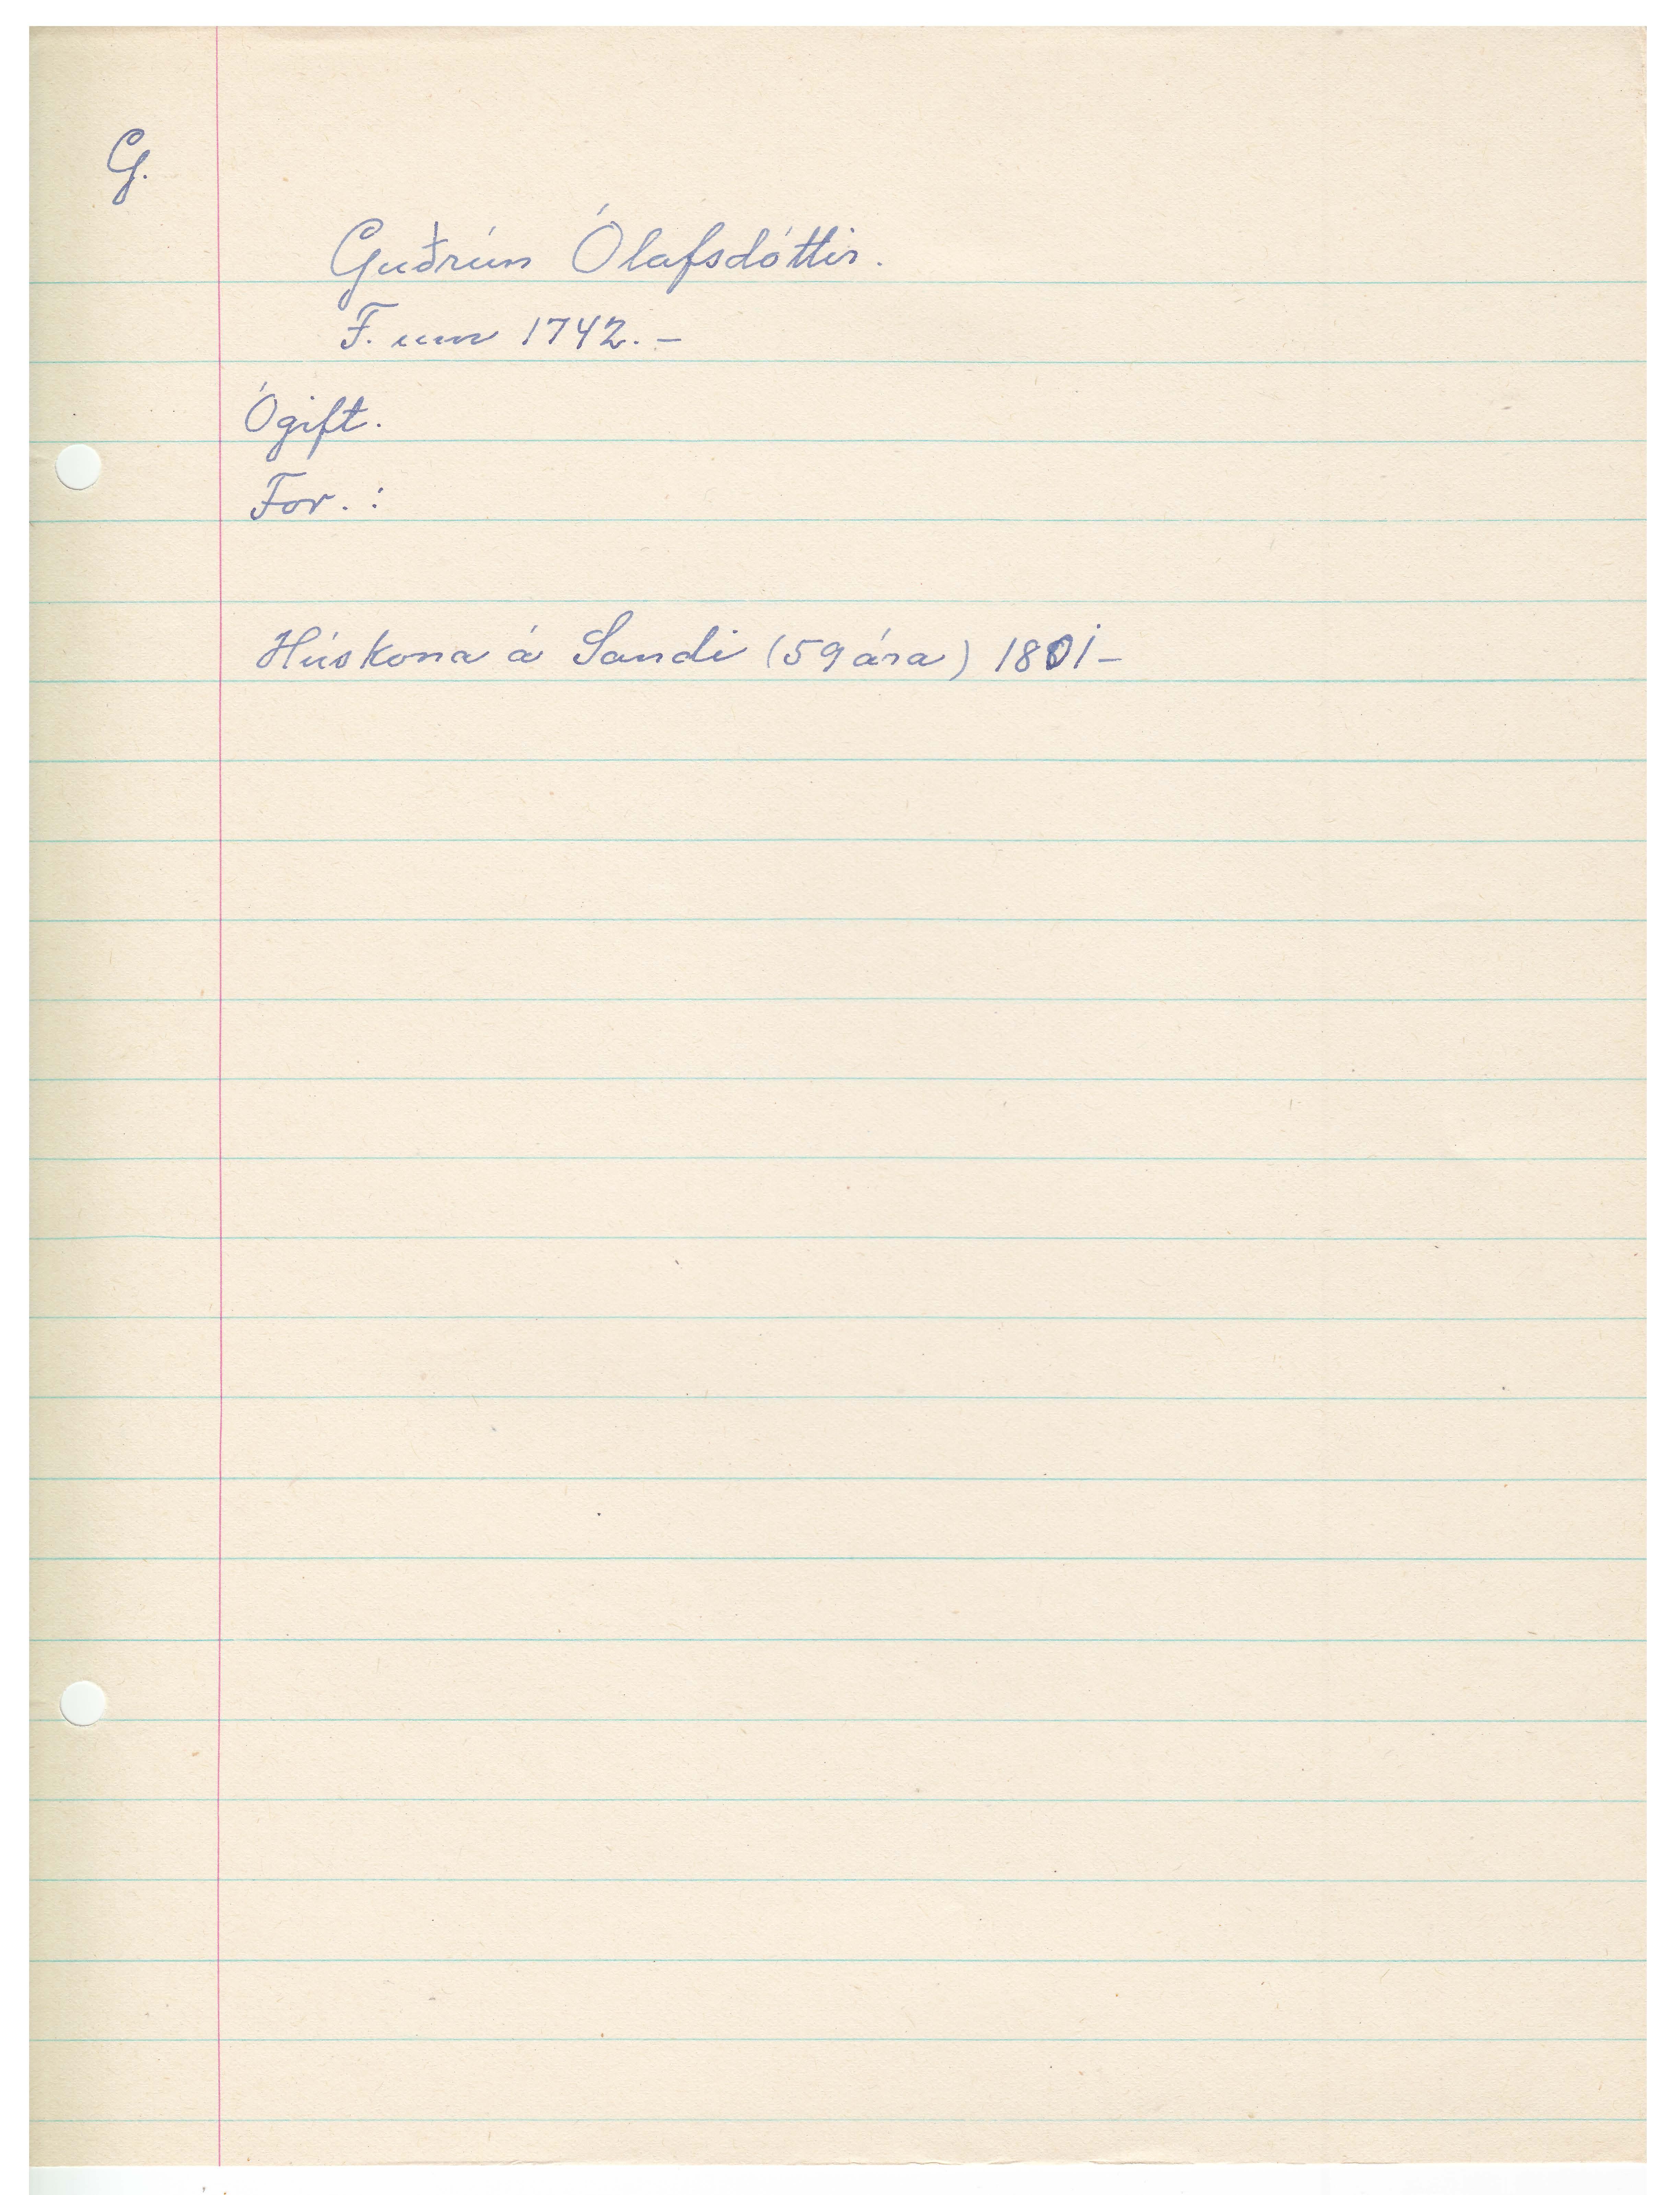 G.
Guðrún Ólafsdóttir.
F. um 1742. –
Ógift.
For. :
Húskona á Sandi (59 ára) 1801 –